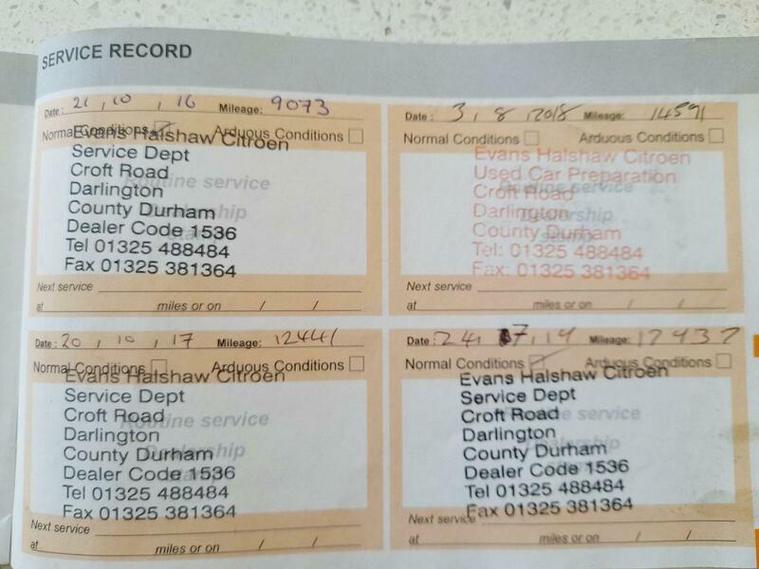 SERVICE RECORD
Date: 21, 10, 16 Mileage: 9073
Normal Conditions Arduous Conditions
Evans Halshaw Citroen
Service Dept
Croft Road
Darlington
County Durham
Dealer Code 1536
Tel 01325 488484
Fax 01325 381364
Routine service
Dealership
Next service
at miles or on / /
Date: 3, 8, 2018 Mileage: 14591
Normal Conditions Arduous Conditions
Evans Halshaw Citroen
Used Car Preparation
Croft Road
Darlington
County Durham
Tel: 01325 488484
Fax: 01325 381364
Routine service
Dealership
stamp
Next service
at miles or on / /
Date: 20, 10, 17 Mileage: 12441
Normal Conditions Arduous Conditions
Evans Halshaw Citroen
Service Dept
Croft Road
Darlington
County Durham
Dealer Code 1536
Tel 01325 488484
Fax 01325 381364
Routine service
Dealership
Next service
at miles or on / /
Date: 24, 7, 19 Mileage: 17937
Normal Conditions Arduous Conditions
Evans Halshaw Citroen
Service Dept
Croft Road
Darlington
County Durham
Dealer Code 1536
Tel 01325 488484
Fax 01325 381364
Routine service
Dealership
Next service
at miles or on / /